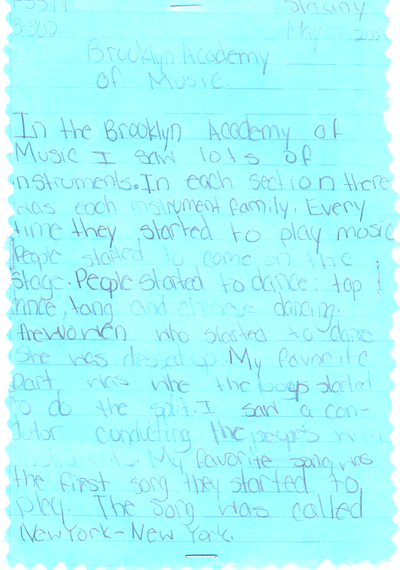 3-302 May
Brooklyn Academy
of Music
In the Brooklyn Academy of
Music I saw lots of
instruments. In each section there
was each instrument family. Every
time they started to play music
People started to come on the
stage. People started to dance: tap
tang and chinese dancing.
the women who started to dance
She was dressed up My favorite
part was whe the started
to do the split. I saw a con-
dutor conducting the
My favorite song was
the first song they started to
play. The song was called
New York-New York.